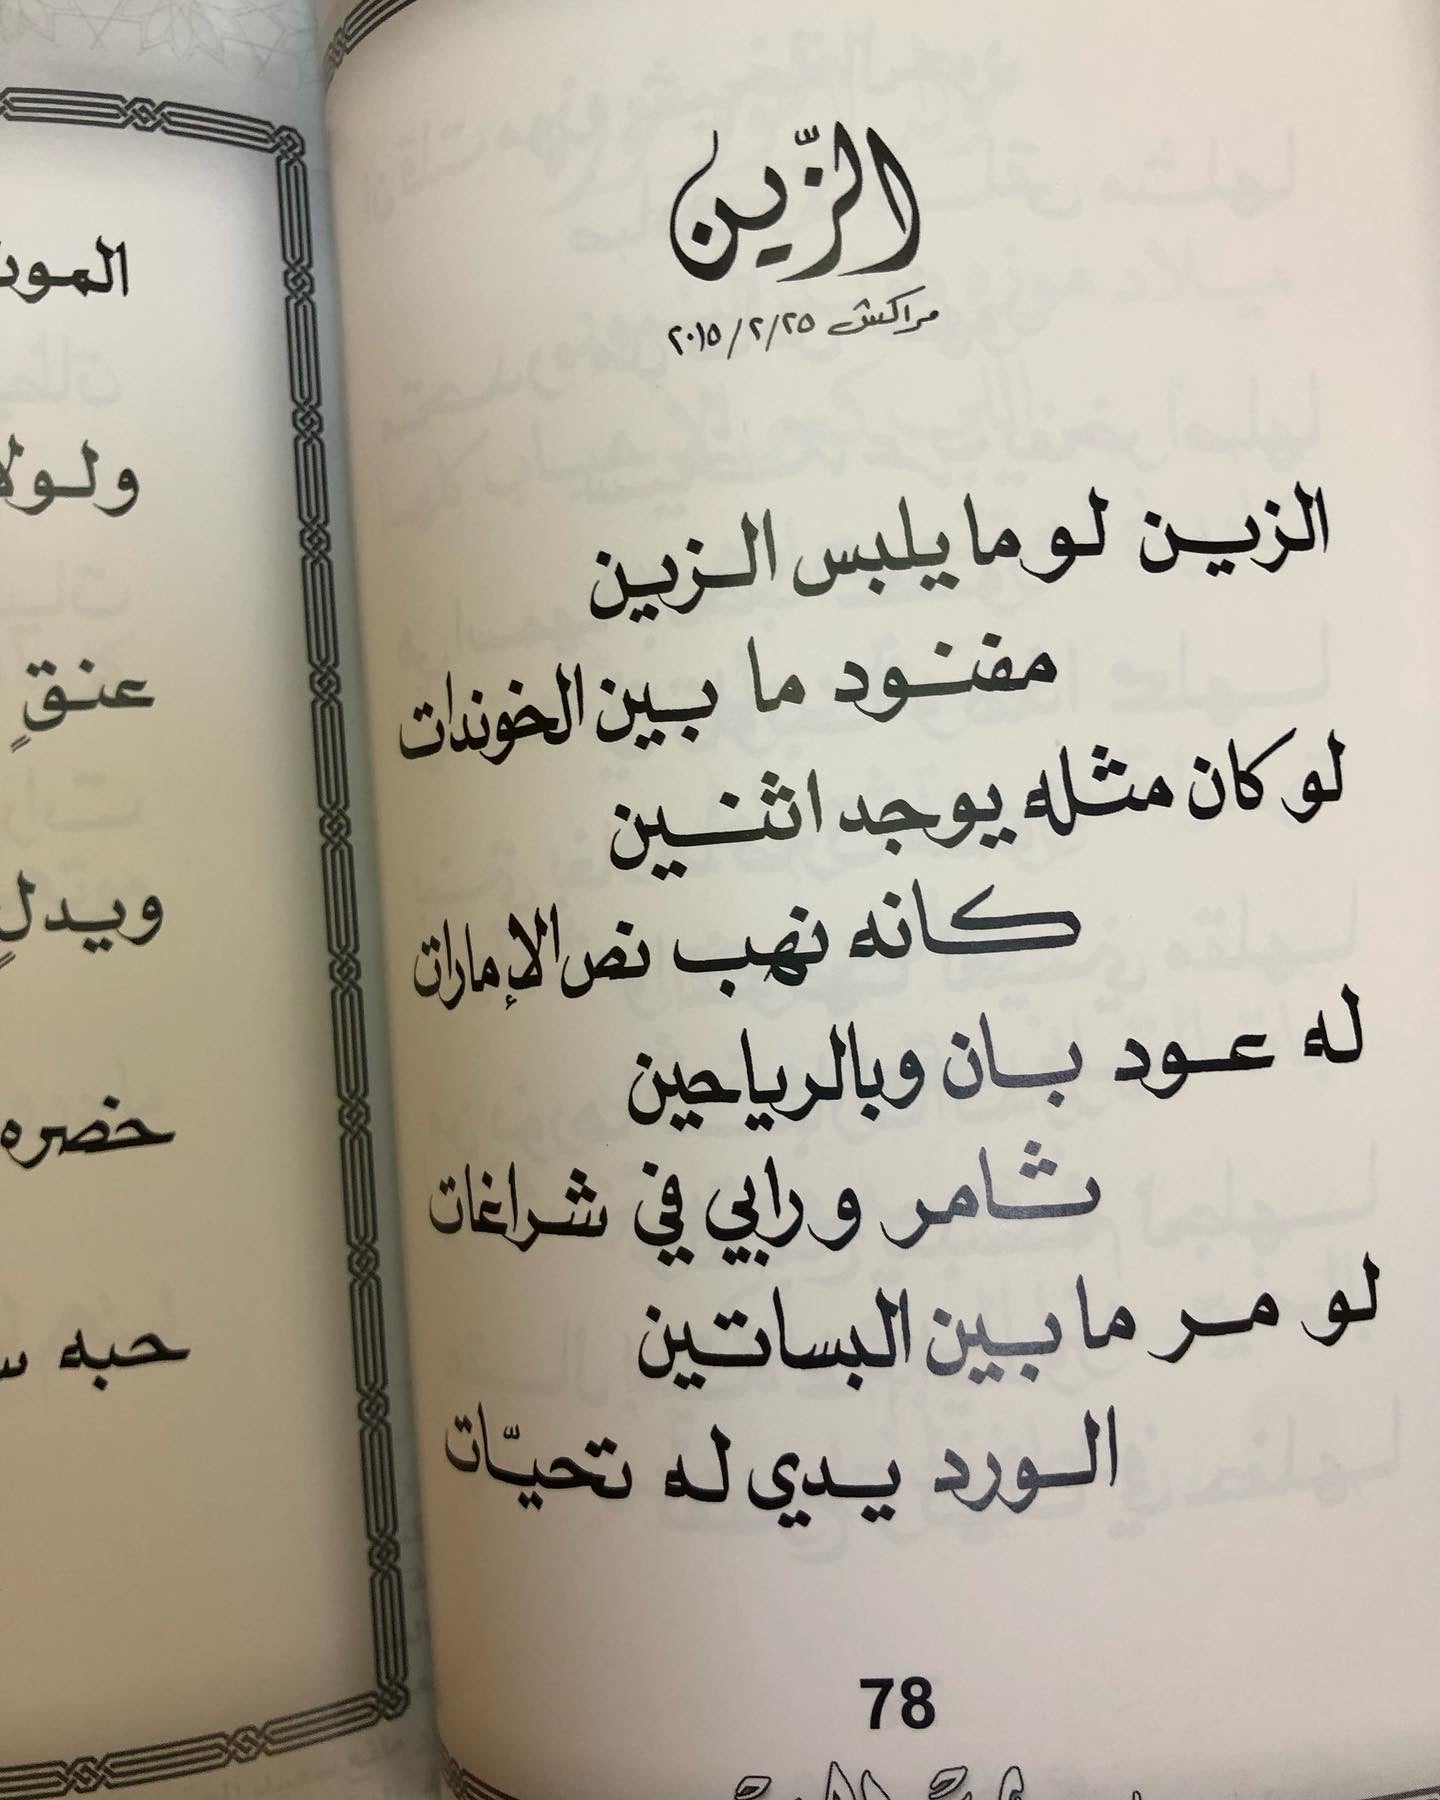 الزّين
مراكش ٢٠١٥/٢/٢٥
الزين لو ما يلبس الزين
مفنود ما بين الخوندات
لو كان مثله يوجد اثنين
كانه نهب نص الإمارات
له عود بان وبالرياحين
ثامر ورابي في شراغات
لو مر ما بين البساتين
الورد يدي له تحيّات
78
ولولا
عنقٍ
ويدلٍ
خضره
حبه